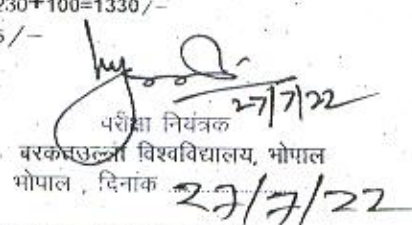 230+100=1330/-
5/-
27/7/22
परीक्षा नियंत्रक
बरकतउल्ला विश्वविद्यालय, भोपाल
भोपाल , दिनांक 27/7/22